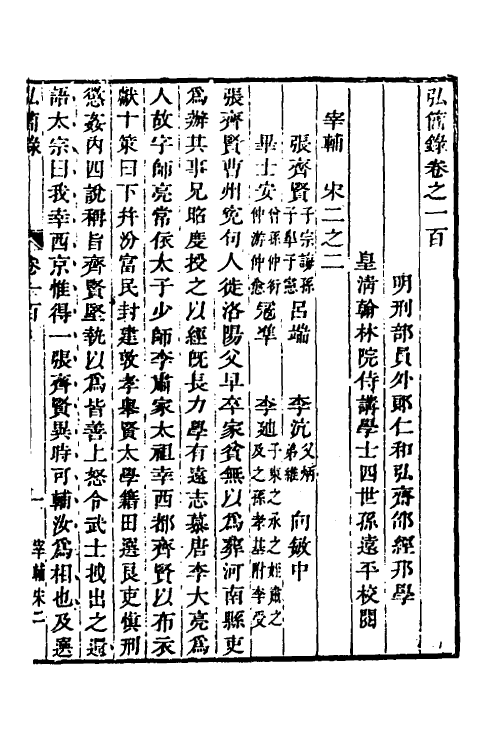 弘簡錄卷之一百
明刑部員外郎仁和弘齋邵經邦學
皇清翰林院侍講學士四世孫遠平校閱
宰輔 宋二之二
張齊賢子宗誨孫子臯子憲 呂端 李沆父炳弟維 向敏中
畢士安曾孫仲衍仲游仲愈 寇準 李迪子柬之承之姪肅之及之孫孝基附李受
張齊賢曹州冤句人徙洛陽父早卒家貧無以爲葬河南縣吏
爲辦其事兄昭慶授之以經旣長力學有遠志慕唐李大亮爲
人故字師亮常依太子少師李肅家太祖幸西都齊賢以布衣
獻十策曰下幷汾富民封建敦孝舉賢太學籍田選良吏愼刑
懲姦內四說稱旨齊賢堅執以爲皆善上怒令武士拽出之還
語太宗曰我幸西京惟得一張齊賢異時可輔汝爲相也及選
弘簡錄 卷一百 一 宰輔宋二